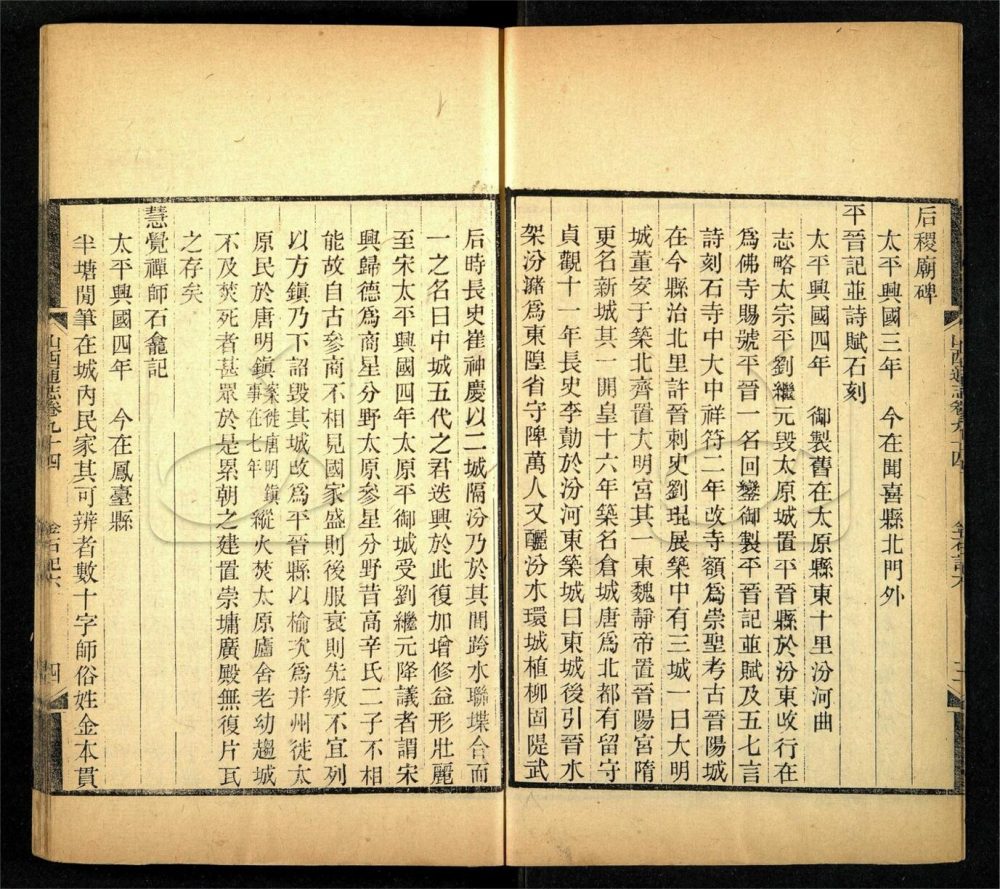 后稷廟碑
太平興國三年　今在聞喜縣北門外
平晉記並詩賦石刻
太平興國四年　御製舊在太原縣東十里汾河曲
志略太宗平劉繼元毀太原城置平晉縣於汾東改行在
爲佛寺賜號平晉一名回鑾御製平晉記並賦及五七言
詩刻石寺中大中祥符二年改寺額爲崇聖考古晉陽城
在今縣治北里許晉刺史劉琨展築中有三城一曰大明
城董安于築北齊置大明宮其一東魏靜帝置晉陽宮隋
更名新城其一開皇十六年築名倉城唐爲北都有留守
貞觀十一年長史李勣於汾河東築城曰東城後引晉水
架汾潞爲東隍省守陴萬人又釃汾水環城植柳固隄武
山西通志卷九十四　金石記六　三
后時長史崔神慶以二城隔汾乃於其間跨水聯堞合而
一之名曰中城五代之君迭興於此復加增修益形壯麗
至宋太平興國四年太原平御城受劉繼元降議者謂宋
興歸德爲商星分野太原參星分野昔高辛氏二子不相
能故自古參商不相見國家盛則後服衰則先叛不宜列
以方鎮乃下詔毀其城改爲平晉縣以榆次爲并州徙太
原民於唐明鎮案徙唐明鎮事在七年縱火焚太原廬舍老幼趨城
不及焚死者甚眾於是累朝之建置崇墉廣殿無復片瓦
之存矣
慧覺禪師石龕記
太平興國四年　今在鳳臺縣
半塘閒筆在城內民家其可辨者數十字師俗姓金本貫
山西通志卷九十四　金石記六　四